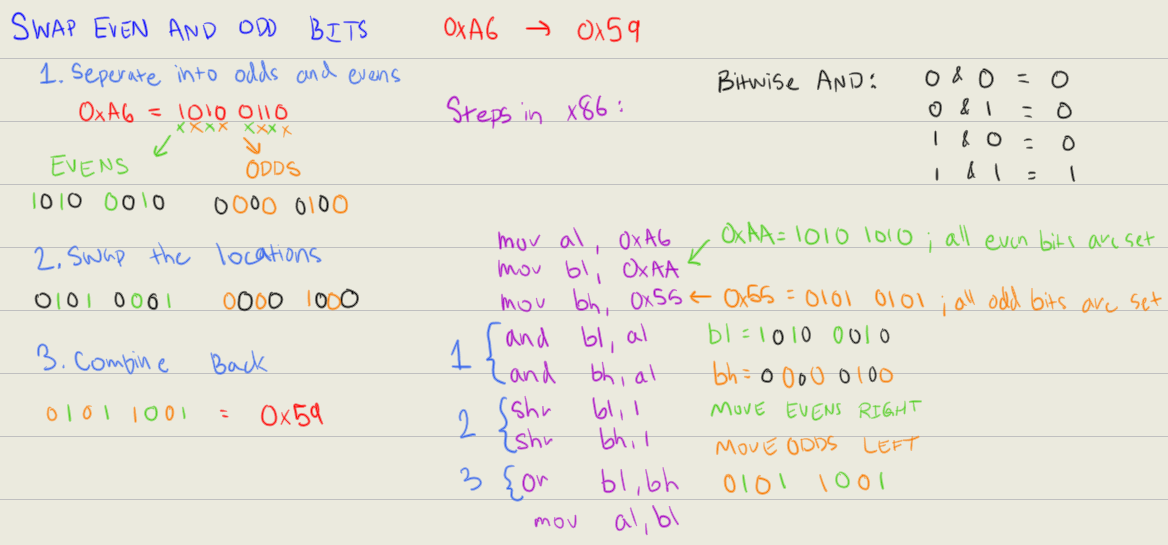 SWAP EVEN AND ODD BITS 0xA6 → 0x59
1. Seperate into odds and evens
0xA6 = 1010 0110
x x x x x x x x
EVENS ODDS
1010 0010 0000 0100
2. Swap the locations
0101 0001 0000 1000
3. Combine Back
0101 1001 = 0x59
Steps in x86:
Bitwise AND: 0 & 0 = 0
0 & 1 = 0
1 & 0 = 0
1 & 1 = 1
mov al, 0xA6
mov bl, 0xAA ← 0xAA = 1010 1010 ; all even bits are set
mov bh, 0x55 ← 0x55 = 0101 0101 ; all odd bits are set
1 { and bl, al bl = 1010 0010
and bh, al bh = 0000 0100
2 { shr bl, 1 MOVE EVENS RIGHT
shr bh, 1 MOVE ODDS LEFT
3 { or bl, bh 0101 1001
mov al, bl